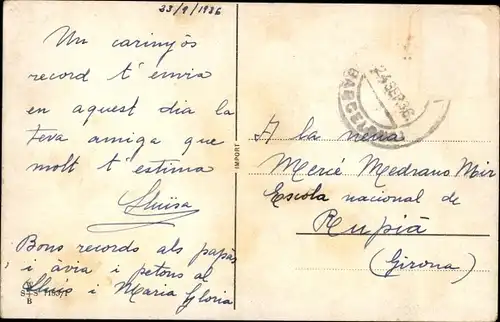 23/9/1936
Un carinyós
record t'envia
en aquest dia la
teva amiga que
molt t'estima
Lluïsa
Bons records als papàs,
i àvia i petons al
Lluís i Maria Gloria
S+S 1193/1
B
IMPORT
24 SEP 36
A la nena
Mercé Medrano Mir
Escola nacional de
Rupià
(Girona)